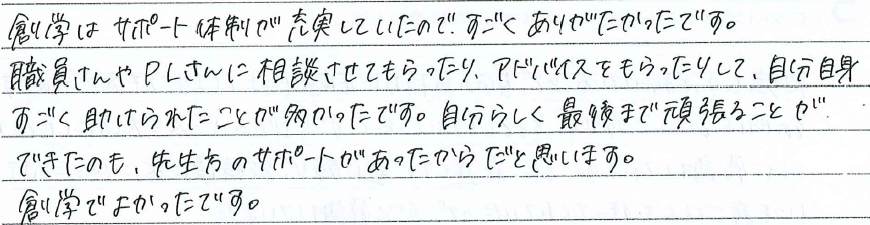 創学はサポート体制が充実していたので、すごくありがたかったです。
職員さんやPLさんに相談させてもらったり、アドバイスをもらったりして、自分自身
すごく助けられたことが多かったです。自分らしく最後まで頑張ることが
できたのも、先生方のサポートがあったからだと思います。
創学でよかったです。